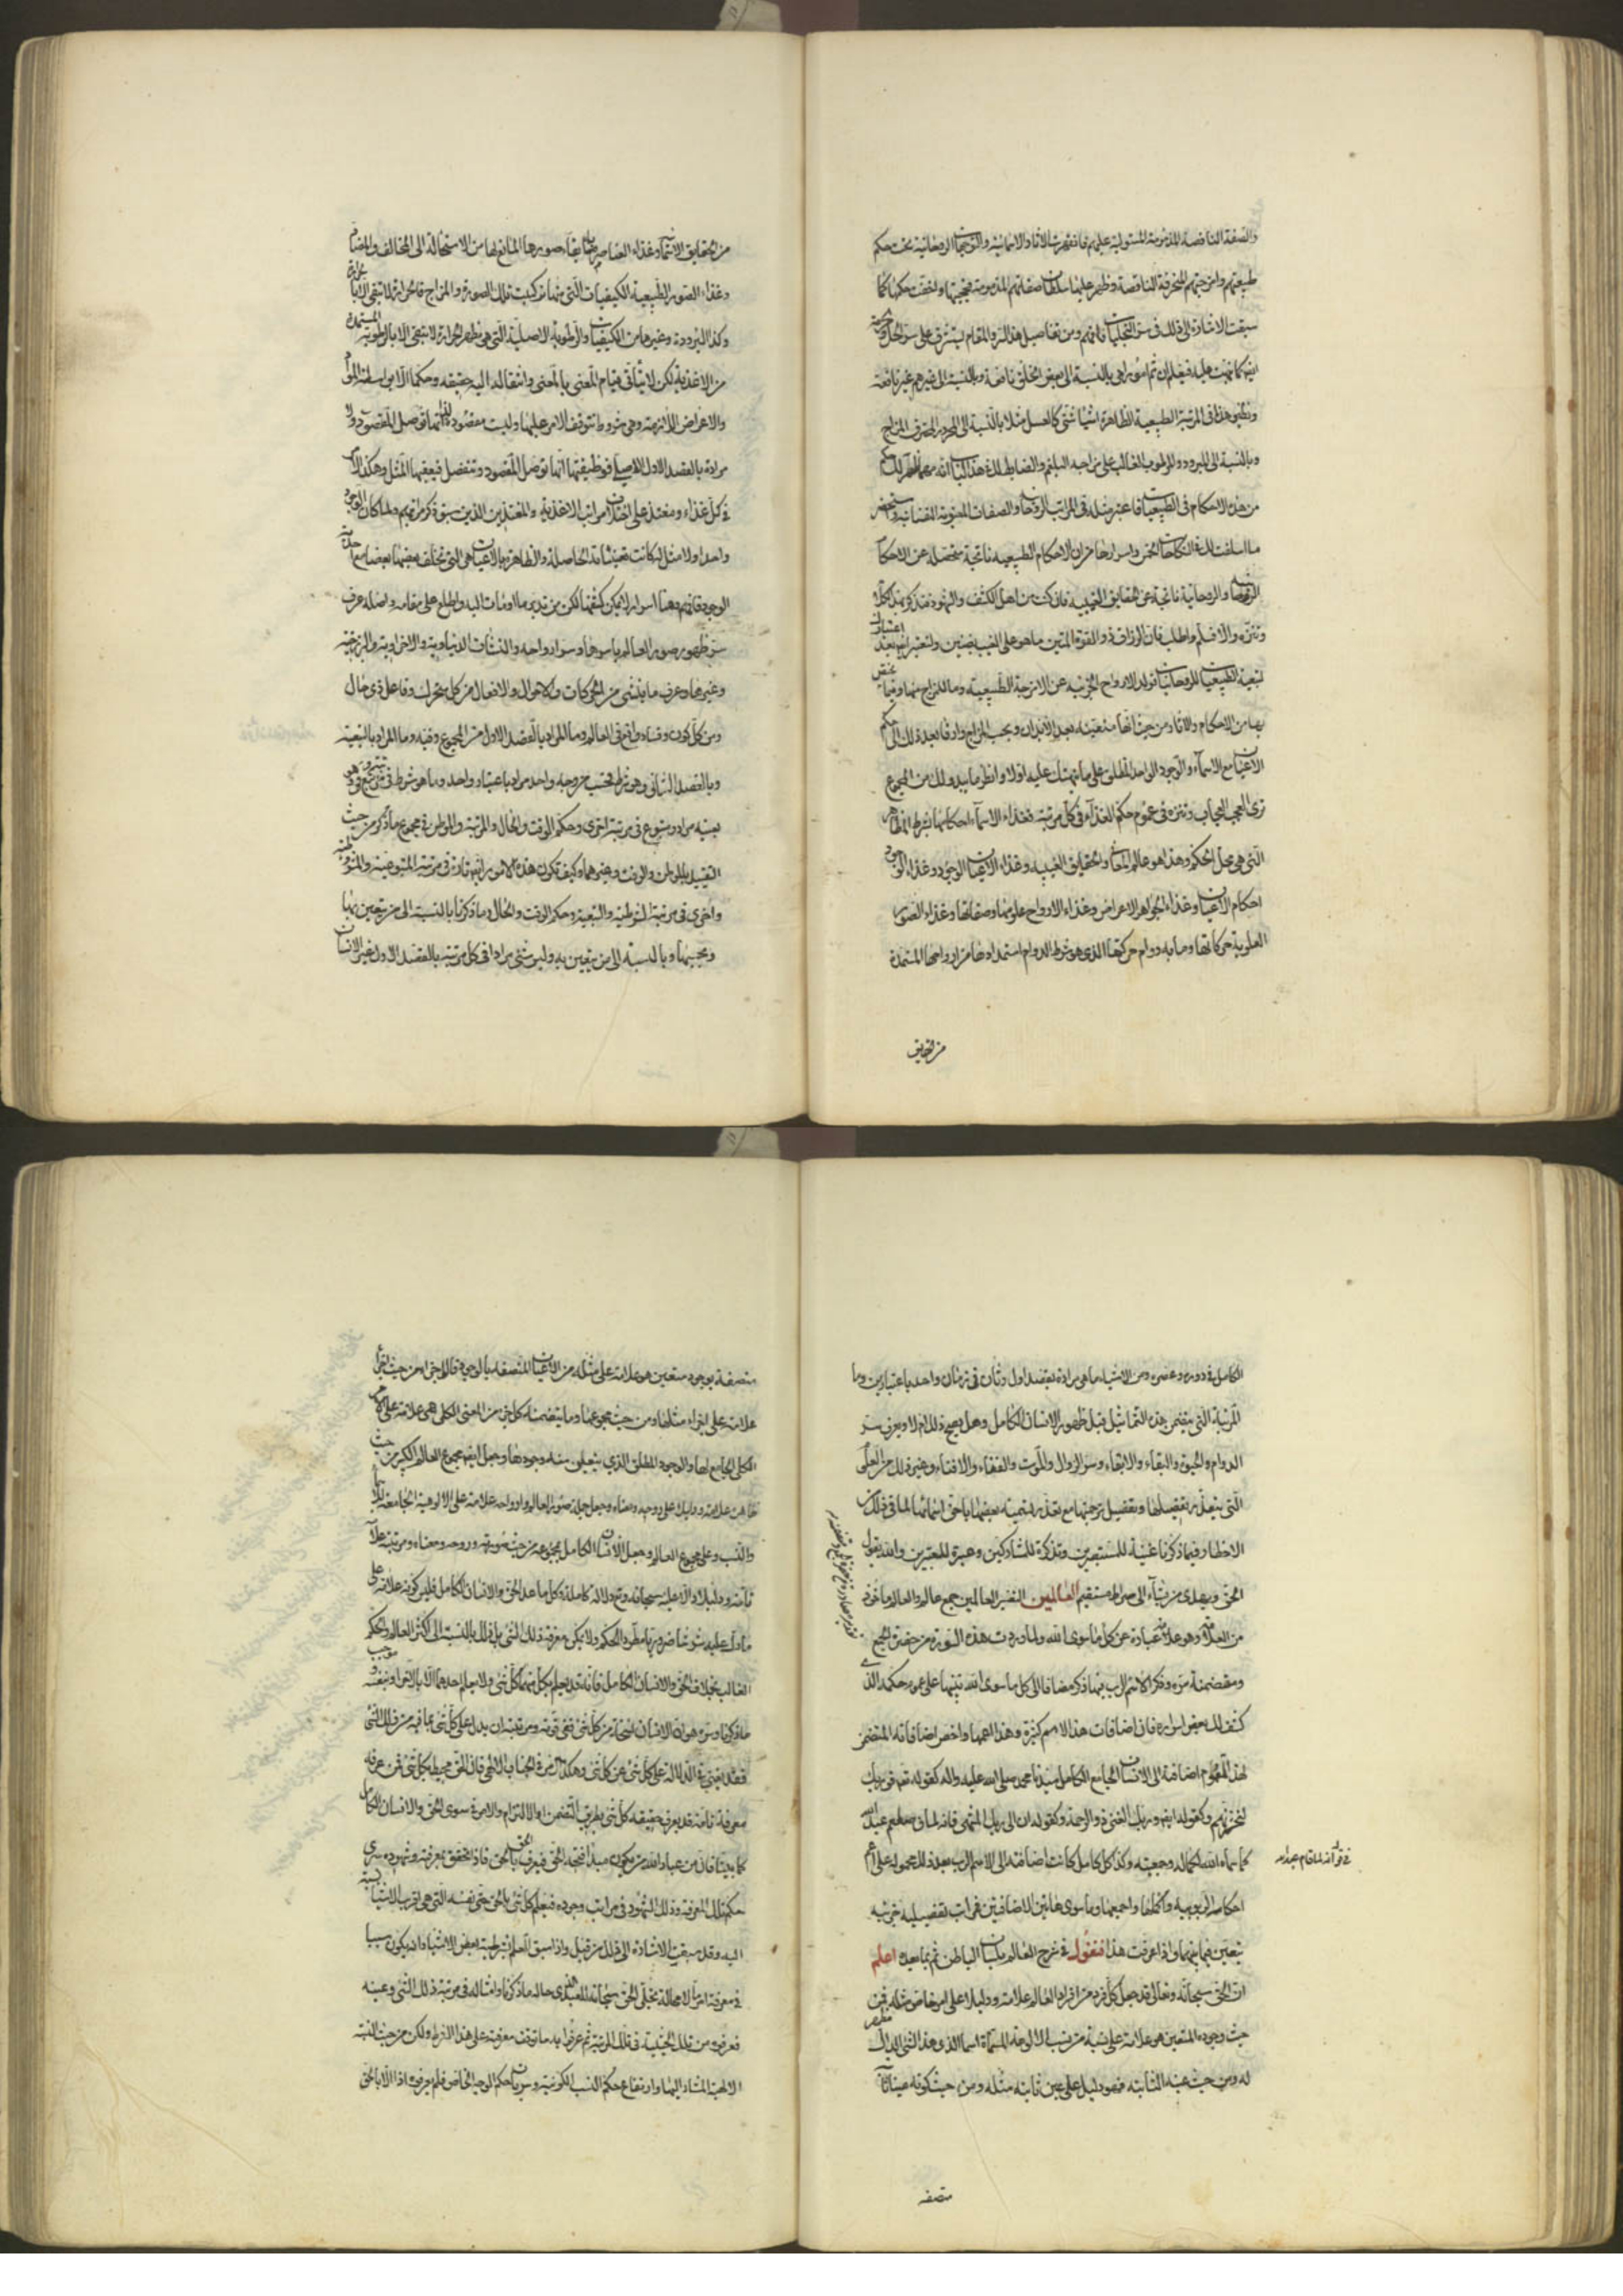 والصفة الناقصة المذمومة المستولية عليهم فانقهرت الآثار الاسمائية والتوجهات الروحانية تحت حكم
طبيعتهم وامزجتهم المنحرفة الناقصة وظهر عليها سلطان صفاتهم المذمومة
سبقت الاشارة الى ذلك في سر التجليات فافهم ومن تفاصيل هذا السر والمقام يستشرف على سر الحل والحرمة
ايضا كما نبهت عليه فيعلم ان ثم امورا هي بالنسبة الى بعض الخلق نافعة وبالنسبة الى غيرهم غير نافعة
ونظير هذا في المرتبة الطبيعية الظاهرة اشياء شتى كالعسل مثلا بالنسبة الى المحرور المحترق المزاج
وبالنسبة الى المبرود والمرطوب الغالب على مزاجه البلغم والضابط لك في هذا الباب انه مهما ظهر لك حكم
من هذه الاحكام في الطبيعيات فاعتبر مثله في المراتب الروحانية والصفات المعنوية النفسانية وتستحضر
ما اسلفت لك في النكاحات الخمس واسرارها من ان الاحكام الطبيعية ناتجة متحصلة عن الاحكام
الروحانية والروحانية ناتجة عن الحقايق الغيبية فان كنت من اهل الكشف والشهود فتذكر بهذا الكلام
وتنزه والا فسلم واطلب فان الرزاق ذو القوة المتين ما هو على الغيب بضنين ولتعتبر ايضا بعد اعتبارك
تبعية الطبيعيات للروحانيات تولد الارواح الجزئية عن الامزجة الطبيعية وما للمزاج منها وفيما يختص
بها من الاحكام والآثار من حيث انها متعينة بعد الابدان وبحسب المزاج وارق بعد ذلك الى حكم
الاعيان مع الاسماء والوجود الواحد المطلق على ما نبهتك عليه اولا وانظر ما يبدو لك من المجموع
ترى العجب العجاب وتنزه في عموم حكم الغذاء في كل مرتبة فغذاء الاسماء احكامها بشرط المظاهر
التي هي محل الحكم وهذا هو عالم المعاني والحقايق الغيبية وغذاء الاعيان الوجود وغذاء الوجود
احكام الاعيان وغذاء الجواهر الاعراض وغذاء الارواح علومها وصفاتها وغذاء الصور
العلوية حركاتها وما به دوام حركتها الذي هو شرط لدوام استمدادها من ارواحها المستمدة
من الحقايق
من الحقايق الاسمائية وغذاء العناصر ما به بقاء صورها المانع لها من الاستحالة الى المخالف والمضاد
وغذاء الصور الطبيعية الكيفيات التي منها تركبت تلك الصورة والمزاج فالحرارة لا تبقى الا بالحرارة
وكذا البرودة وغيرها من الكيفيات والرطوبة الاصلية التي هي مظهر الحرارة لا تبقى الا بالرطوبة المستمدة
من الاغذية لكن لا يتأتى قيام المعنى بالمعنى وانتقاله اليه حقيقة وحكما الا بواسطة المواد
والاعراض اللازمة وهي شروط يتوقف الامر عليها وليست مقصودة لذاتها انما توصل المقصود ولا
مرادة بالقصد الاول الاصلي فوظيفتها انها توصل المقصود وتنفصل فيعقبها المثل وهكذا الامر
في كل غذاء ومغتذ على اختلاف مراتب الاغذية والمغتذين الذين سبق ذكر مراتبهم ولما كان الوجود
واحدا ولا مثل له كانت تعيناته الحاصلة والظاهرة بالاعيان هي التي تخلف بعضها بعضا مع احدية
الوجود فافهم وهنا اسرار لا يمكن كشفها لكن من تدبر ما اومأت اليه واطلع على مقامه واصله عرف
سر ظهور صور العالم باسرها وسر ارواحه والنشآت الدنياوية والاخراوية والبرزخية
وغيرها وعرف ما ينشئ من الحركات والاحوال والافعال من كل متحرك وفاعل ذي حال
ومن كل كون وفساد واقع في العالم وما المراد بالقصد الاول من المجموع وفيه وما المراد بالتبعية
وبالقصد الثاني وهو شرط فحسب من وجه واحد مراد باعتبار واحد وما هو شرط
بعينه مراد ومتبوع في مرتبة اخرى وحكم الوقت والحال والمرتبة والموطن في مجموع ما ذكر من حيث
التقييد بالموطن والوقت وغيرهما وكيف تكون هذه الامور ايضا تارة في مرتبة المتبوعية والمشروطية
واخرى في مرتبة الشرطية والتبعية وحكم الوقت والحال وما ذكرنا بالنسبة الى من يتعين بها
وبحسبها وبالنسبة الى من يتعين به وليس شئ مرادا في كل مرتبة بالقصد الاول غير الانسان
الكامل في دوره وعصره ومن الاشياء ما هي مرادة بقصد اول وثان في زمان واحد باعتبارين وما
المرتبة التي يقتضي هذه التماثيل قبل ظهور الانسان الكامل وهل يصح ذلك ام لا ويعرف سر
الدوام والحيوة والبقاء والابقاء وسر الزوال والموت والفناء والافناء وغير ذلك من العلوم
التي يتعذر تفصيلها وتفصيل ترجمتها مع تعذر تسمية بعضها باخص اسمائها لما في ذلك من
الاخطار وفيما ذكرنا غنية للمستبصرين وتذكرة للمشاركين وعبرة للمعتبرين والله يقول
الحق ويهدي من يشاء الى صراط مستقيم العالمين التفسير العالمين جمع عالم والعالم مأخوذ
من العلامة وهو عبارة عن كل ما سوى الله ولما وردت هذه السورة من حضرة الجمع
ومتضمنة سره وذكر الاسم الرب فيها ذكره مضافا الى كل ما سوى الله تنبيها على عموم حكمه الذي
كشف لك بعض اسراره فان اضافات هذا الاسم كثيرة وهذا اعمها واخص اضافاته المتضمن
لهذا العموم اضافته الى الانسان الجامع الكامل سيدنا محمد صلى الله عليه واله كقوله تعالى فوربك
لنحشرنهم وكقوله ايضا وربك الغني ذو الرحمة وكقوله ان الى ربك المنتهى فانه لما قام عبد الله
كما سماه الله لكماله وجمعيته وكذا كل كامل كانت اضافته الى الاسم الرب بعد ذلك محمولة على اعم
احكام الربوبية واكملها واجمعها وما سوى هاتين الاضافتين فمراتب تفصيلية جزئية
يتعين فيما بينهما واذا عرفت هذا فنقول في شرح العالم بلسان الباطن ثم بما بعده اعلم
ان الحق سبحانه وتعالى قد جعل كل فرد من افراد العالم علامة ودليلا على امر خاص مثله فمن
حيث وجوده المتعين هو علامة على نسبة من نسب الالوهة المسماة اسما الذي هذا الشئ الدال مظهر
له ومن حيث عينه الثابتة فهو دليل على عين ثابتة مثله ومن حيث كونه عينا ثابتة
متصفة
متصفة بوجود متعين هو علامة على مثله من الاعيان المتصفة بالوجود فالاجزاء من حيث هي اجزاء
علامة على اجزاء مثلها ومن حيث مجموعها وما يتضمنه كل جزء من المعنى الكلي هي علامة على الامر
الكلي الجامع لها والوجود المطلق الذي يتعين منه وجودها وجعل ايضا مجموع العالم الكبير من حيث
ظاهره علامة ودليلا على روحه ومعناه وجعل جملة صور العالم وارواحه علامة على الالوهية الجامعة للاسماء
والنسب وعلى مجموع العالم وجعل الانسان الكامل بمجموعه من حيث صورته وروحه ومعناه ومرتبته علامة
تامة ودليلا دالا عليه سبحانه وتعالى دلالة كاملة وكل ما عدا الحق والانسان الكامل فليس كونه علامة على
ما دل عليه شرطا ضروريا مطرد الحكم ولا يمكن معرفة ذلك الشئ بل ذلك بالنسبة الى اكثر العالم والحكم
الغالب بخلاف الحق والانسان الكامل فانه قد يعلم بكل منهما كل شئ ولا يعلم احدهما الا بالآخر او بنفسه وموجب
ما ذكرنا وسره هو ان الانسان نسخة من كل شئ ففي قوته ومرتبته ان يدل على كل شئ بما فيه من ذلك الشئ
فقد يغني في الدلالة على كل شئ عن كل شئ وهكذا الامر في الجناب الالهي فان الحق محيط بكل شئ فمن عرفه
معرفة تامة قد يعرف حقيقة كل شئ بطريق التضمن او الالتزام والامر في سوى الحق والانسان الكامل
كما بينا فان من عباد الله من يكون مبدأ فتحه الحق فيعرف الحق بالحق فاذا تحقق بمعرفته وشهوده سرى
حكم تلك المعرفة وذلك الشهود في مراتب وجوده فيعلم كل شئ بالحق حتى نفسه التي هي اقرب الاشياء نسبة
اليه وقد سبقت الاشارة الى ذلك من قبل واذا سبق العلم بشرطية بعض الاشياء وانه يكون سببا
في معرفة امر ما لا محالة تجلى الحق سبحانه للعبد الذي حاله ما ذكرنا وامثاله في مرتبة ذلك الشئ وعينه
فعرفه من تلك الحيثية في تلك المرتبة ثم عرف به ما توقفت معرفته على هذا الشرط ولكن من حيث النسبة
الالهية المشار اليها وارتفاع حكم النسب الكونية وسريان حكم الوجه الخاص فلم يعرف اذا الا بالحق